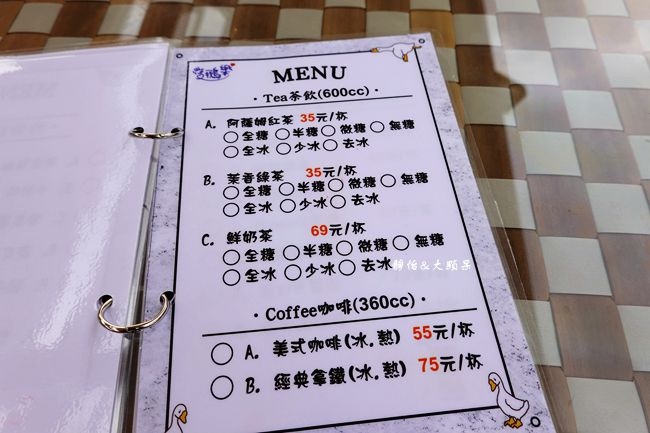 MENU
·Tea茶飲(600cc)·
A. 阿薩姆紅茶 35元/杯
○全糖 ○半糖 ○微糖 ○無糖
○全冰 ○少冰 ○去冰
B. 茉香綠茶 35元/杯
○全糖 ○半糖 ○微糖 ○無糖
○全冰 ○少冰 ○去冰
C. 鮮奶茶 69元/杯
○全糖 ○半糖 ○微糖 ○無糖
○全冰 ○少冰 ○去冰
靜怡&大顆呆
·Coffee咖啡(360cc)·
○ A. 美式咖啡(冰.熱) 55元/杯
○ B. 經典拿鐵(冰.熱) 75元/杯